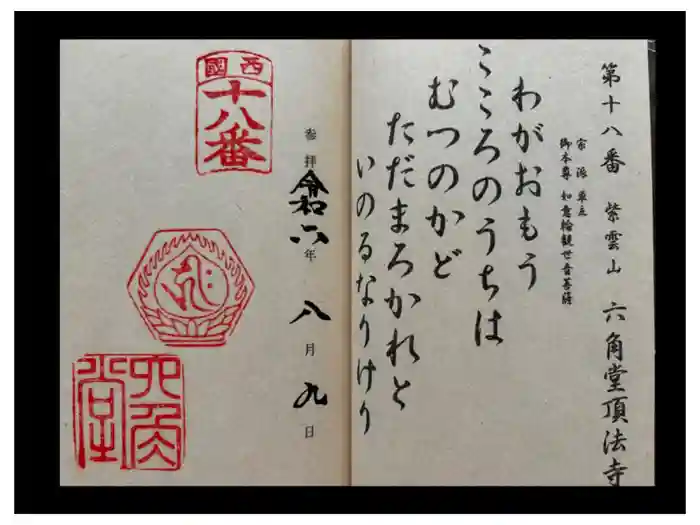 第十八番 紫雲山 六角堂頂法寺
宗派 単立
御本尊 如意輪観世音菩薩
わがおもう
こころのうちは
むつのかど
ただまろかれと
いのるなりけり
参拝 令和六年 八月 九日
西國
十八番
六角堂